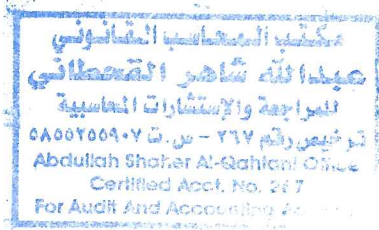 مكتب المحاسب القانوني
عبدالله شاهر القحطاني
للمراجعة والإستشارات المحاسبية
ترخيص رقم ٢٦٧ - س.ت ٥٨٥٥٢٥٥٩٠٧
Abdullah Shaher Al-Qahtani Office
Certified Acct. No. 267
For Audit And Accounting